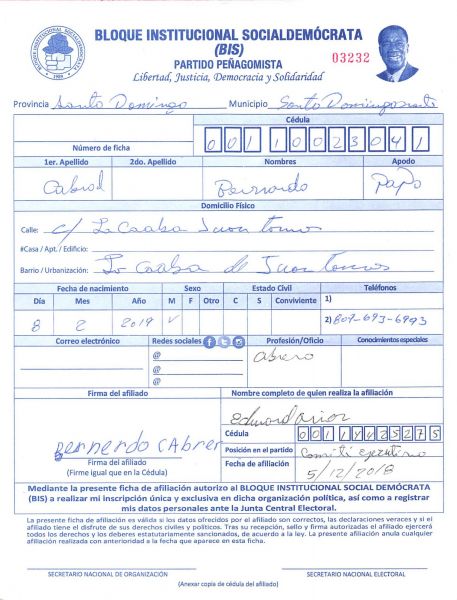 BLOQUE INSTITUCIONAL SOCIALDEMÓCRATA
BLOQUE INSTITUCIONAL SOCIALDEMÓCRATA
(BIS)
PARTIDO PEÑAGOMISTA
03232
Libertad, Justicia, Democracia y Solidaridad
Provincia Santo Domingo Municipio Santo Domingo
Cédula
Número de ficha 0 0 1 1 0 0 2 3 0 4 1
1er. Apellido 2do. Apellido Nombres Apodo
Cabral Bernardo Papo
Domicilio Físico
Calle: c/ La Caoba Juan Tomas
#Casa / Apt. / Edificio:
Barrio / Urbanización: La Caoba de Juan Tomas
Fecha de nacimiento Sexo Estado Civil Teléfonos
Día Mes Año M F Otro C S Conviviente 1)
8 2 2019 2) 809-693-6993
Correo electrónico Redes sociales Profesión/Oficio Conocimientos especiales
@ obrero
@
@
Firma del afiliado Nombre completo de quien realiza la afiliación
Cédula 0 0 1 1 4 4 2 5 2 7 5
Bernerdo CAbrer
Posición en el partido Comité ejecutivo
Firma del afiliado
(Firme igual que en la Cédula)
Fecha de afiliación 5/12/2018
Mediante la presente ficha de afiliación autorizo al BLOQUE INSTITUCIONAL SOCIAL DEMÓCRATA
(BIS) a realizar mi inscripción única y exclusiva en dicha organización política, así como a registrar
mis datos personales ante la Junta Central Electoral.
La presente ficha de afiliación es válida si los datos ofrecidos por el afiliado son correctos, las declaraciones veraces y si el
afiliado tiene el disfrute de sus derechos civiles y políticos. Tras su recepción, sello y firma autorizadas el afiliado ejercerá
todos los derechos y los deberes estatutariamente sancionados, de acuerdo a la ley. La presente afiliación anula cualquier
afiliación realizada con anterioridad a la fecha que aparece en esta ficha.
SECRETARIO NACIONAL DE ORGANIZACIÓN SECRETARIO NACIONAL ELECTORAL
(Anexar copia de cédula del afiliado)